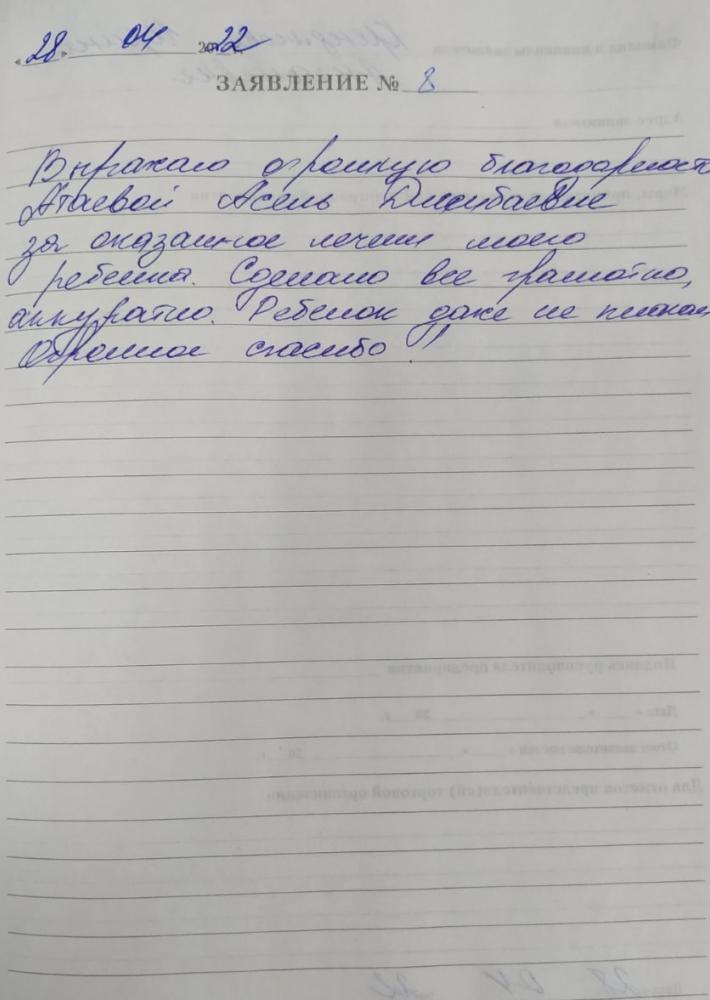 «28» 04 2022
ЗАЯВЛЕНИЕ № 8
Выражаю огромную благодарность
Атаевой Асель
за оказанное лечение моего
ребенка. Сделано все грамотно,
аккуратно. Ребенок даже не плакал.
Огромное спасибо!!